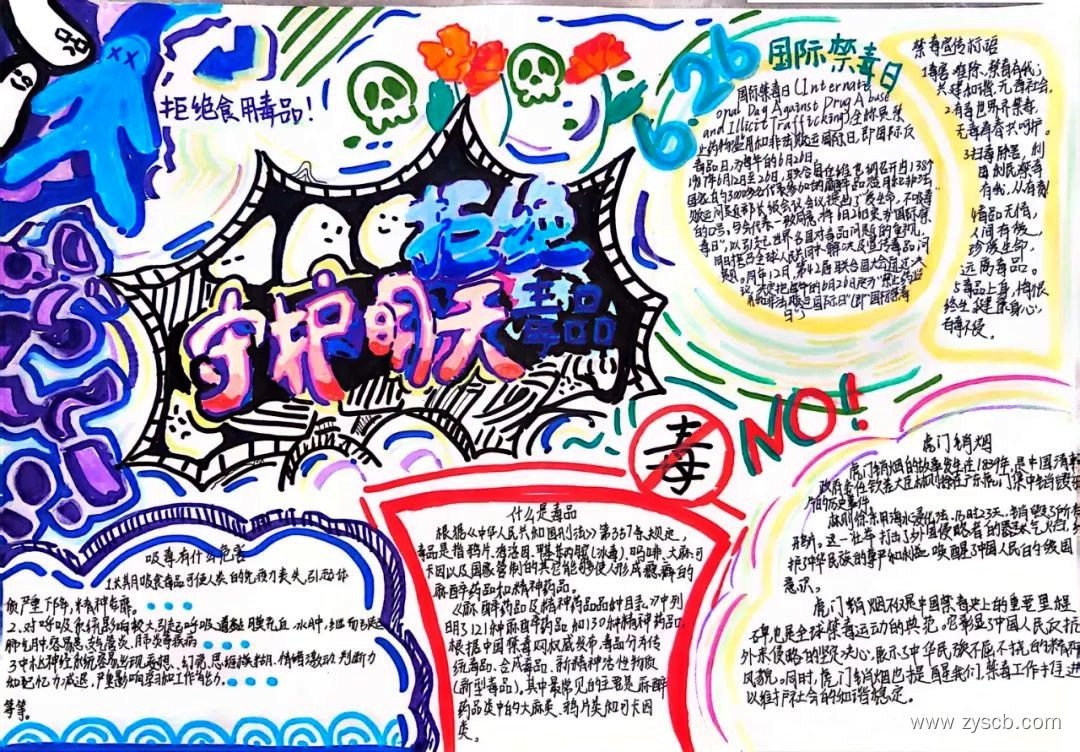 拒绝食用毒品！
拒绝
毒品
守护明天
6.26
国际禁毒日
国际禁毒日(Internati
onal Day Against Drug Abuse
and Illicit Trafficking)全称是禁
止药物滥用和非法贩运国际日,即国际反
毒品日,为每年的6月26日。
1987年6月12至26日,联合国在维也纳召开由138个
国家的3000多名代表参加的麻醉品滥用和非法
贩运问题部长级会议会议提出了"爱生命,不吸毒
的口号,与会代表一致同意,将6月26日定为"国际禁
毒日",以引起世界各国对毒品问题的重视,
同时号召全球人民共同来解决及宣传毒品问
题。同年12月,第42届联合国大会通过决
议,决定把每年的6月26日定为"禁止药物滥
用和非法贩运国际日"(即"国际禁毒
日")
禁毒宣传标语
1毒害难除,禁毒有我;
共建和谐,无毒社会,
2.有毒世界齐禁毒
无毒青春共呵护。
3扫毒除害,利
国利民禁毒
有我,从有我!
4毒品无情,
人间有彼,
珍爱生命,
远离毒品。
5毒品上身,悔恨
终生健康身心,
自毒不侵
毒
NO!!
虎门销烟
虎门销烟的故事发生在1839年,是中国清朝
政府委任钦差大臣林则徐在广东虎门集中销毁鸦
片的历史事件
林则徐采用海水浸化法,历时23天,销毁了所有
鸦片。这一壮举打击了外国侵略者的嚣张气焰,维
护了中华民族的尊严和利益,唤醒了中国人民的爱国
意识。
虎门销烟不仅是中国禁毒史上的重要里程
碑,也是全球禁毒运动的典范,它彰显了中国人民反抗
外来侵略的坚定决心,展示了中华民族不屈不挠的精神
风貌。同时,虎门销烟也提醒我们,禁毒工作任重
以维护社会的和谐稳定。
什么是毒品
根据《中华人民共和国刑法》第357条规定,
毒品是指鸦片,海洛因,甲基苯丙胺(冰毒),吗啡,大麻,可
卡因以及国家管制的其它能够使人形成瘾癖的
麻醉药品和精神药品。
《麻醉药品及精神药品品种目录》中列
明了121种麻醉药品和130种精神药品,
根据中国禁毒网权威发布,毒品分为传
统毒品,合成毒品,新精神活性物质
(新型毒品),其中最常见的主要是麻醉
药品类中的大麻类、鸦片类和可卡因
类。
吸毒有什么危害
1长期吸食毒品可使人类的免疫力丧失,引起体
质严重下降,精神萎靡。
2.对呼吸系统影响较大引起呼吸道黏膜充血,水肿,继而引起
肺气肿容易患支气管炎,肺炎等疾病
3中枢神经系统容易出现妄想、幻觉,思维模糊,情绪激动,判断力
和记忆力减退,严重影响学习和工作能力。
等等。
www.zyscb.com